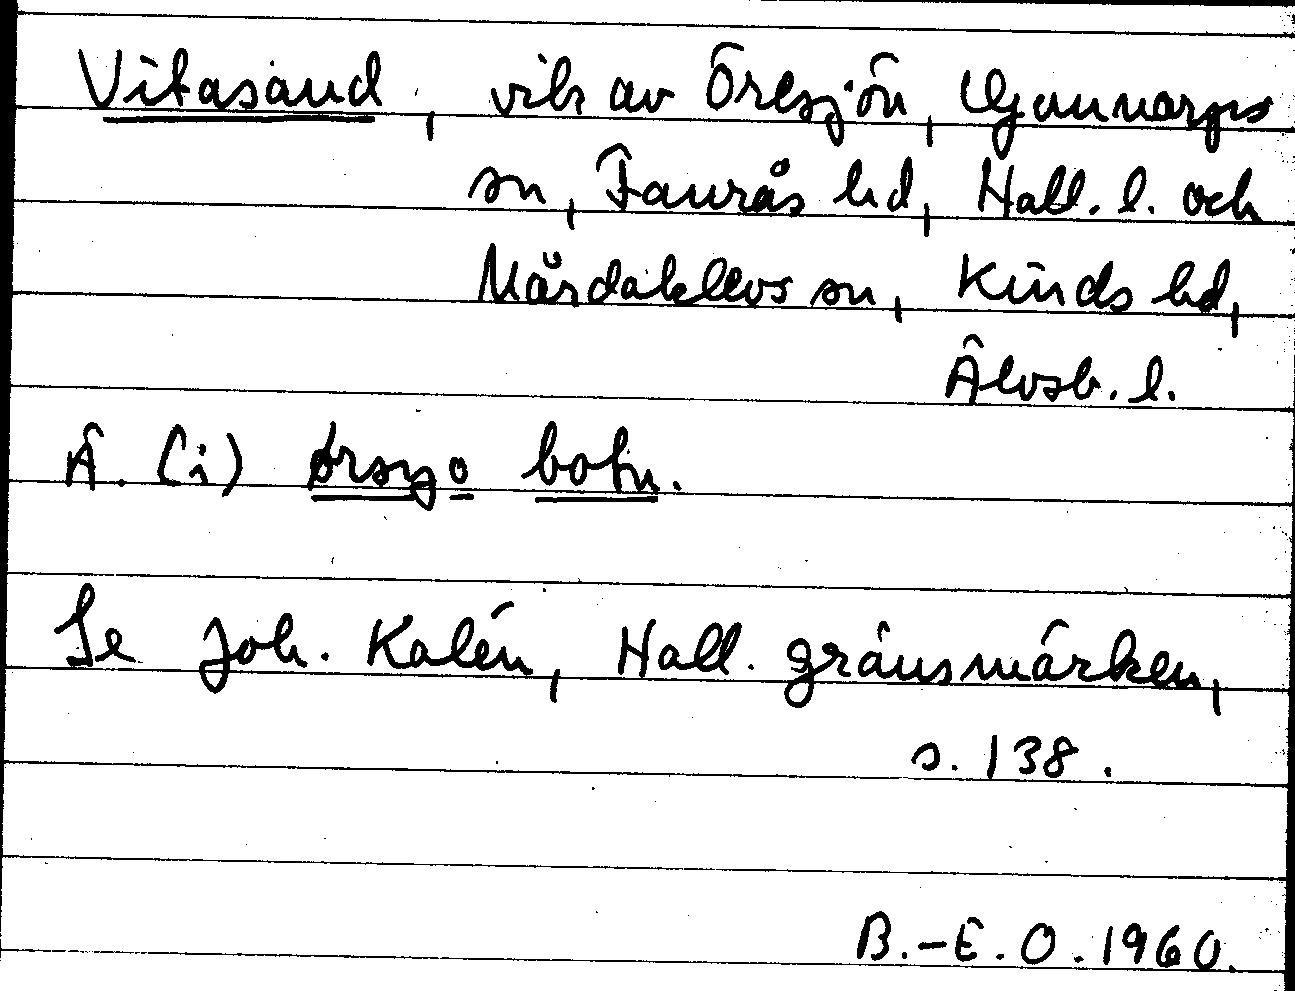 Vitasand, vik av Öresjön, Gunnarps
sn, Faurås hd, Hall. l. och
Mårdaklevs sn, Kinds hd,
Älvsb. l.
Ä. (i) ørsyo botn.
Se Joh. Kalén, Hall. gränsmärken,
s. 138.
B.-E. O. 1960.